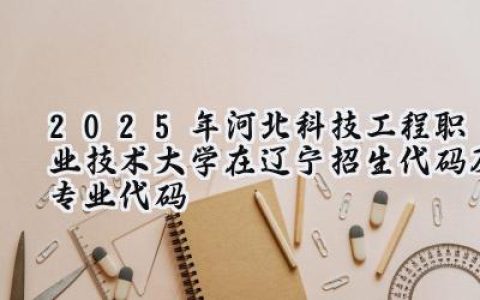 2025年河北科技工程职
业技术大学在辽宁招生代码及
专业代码